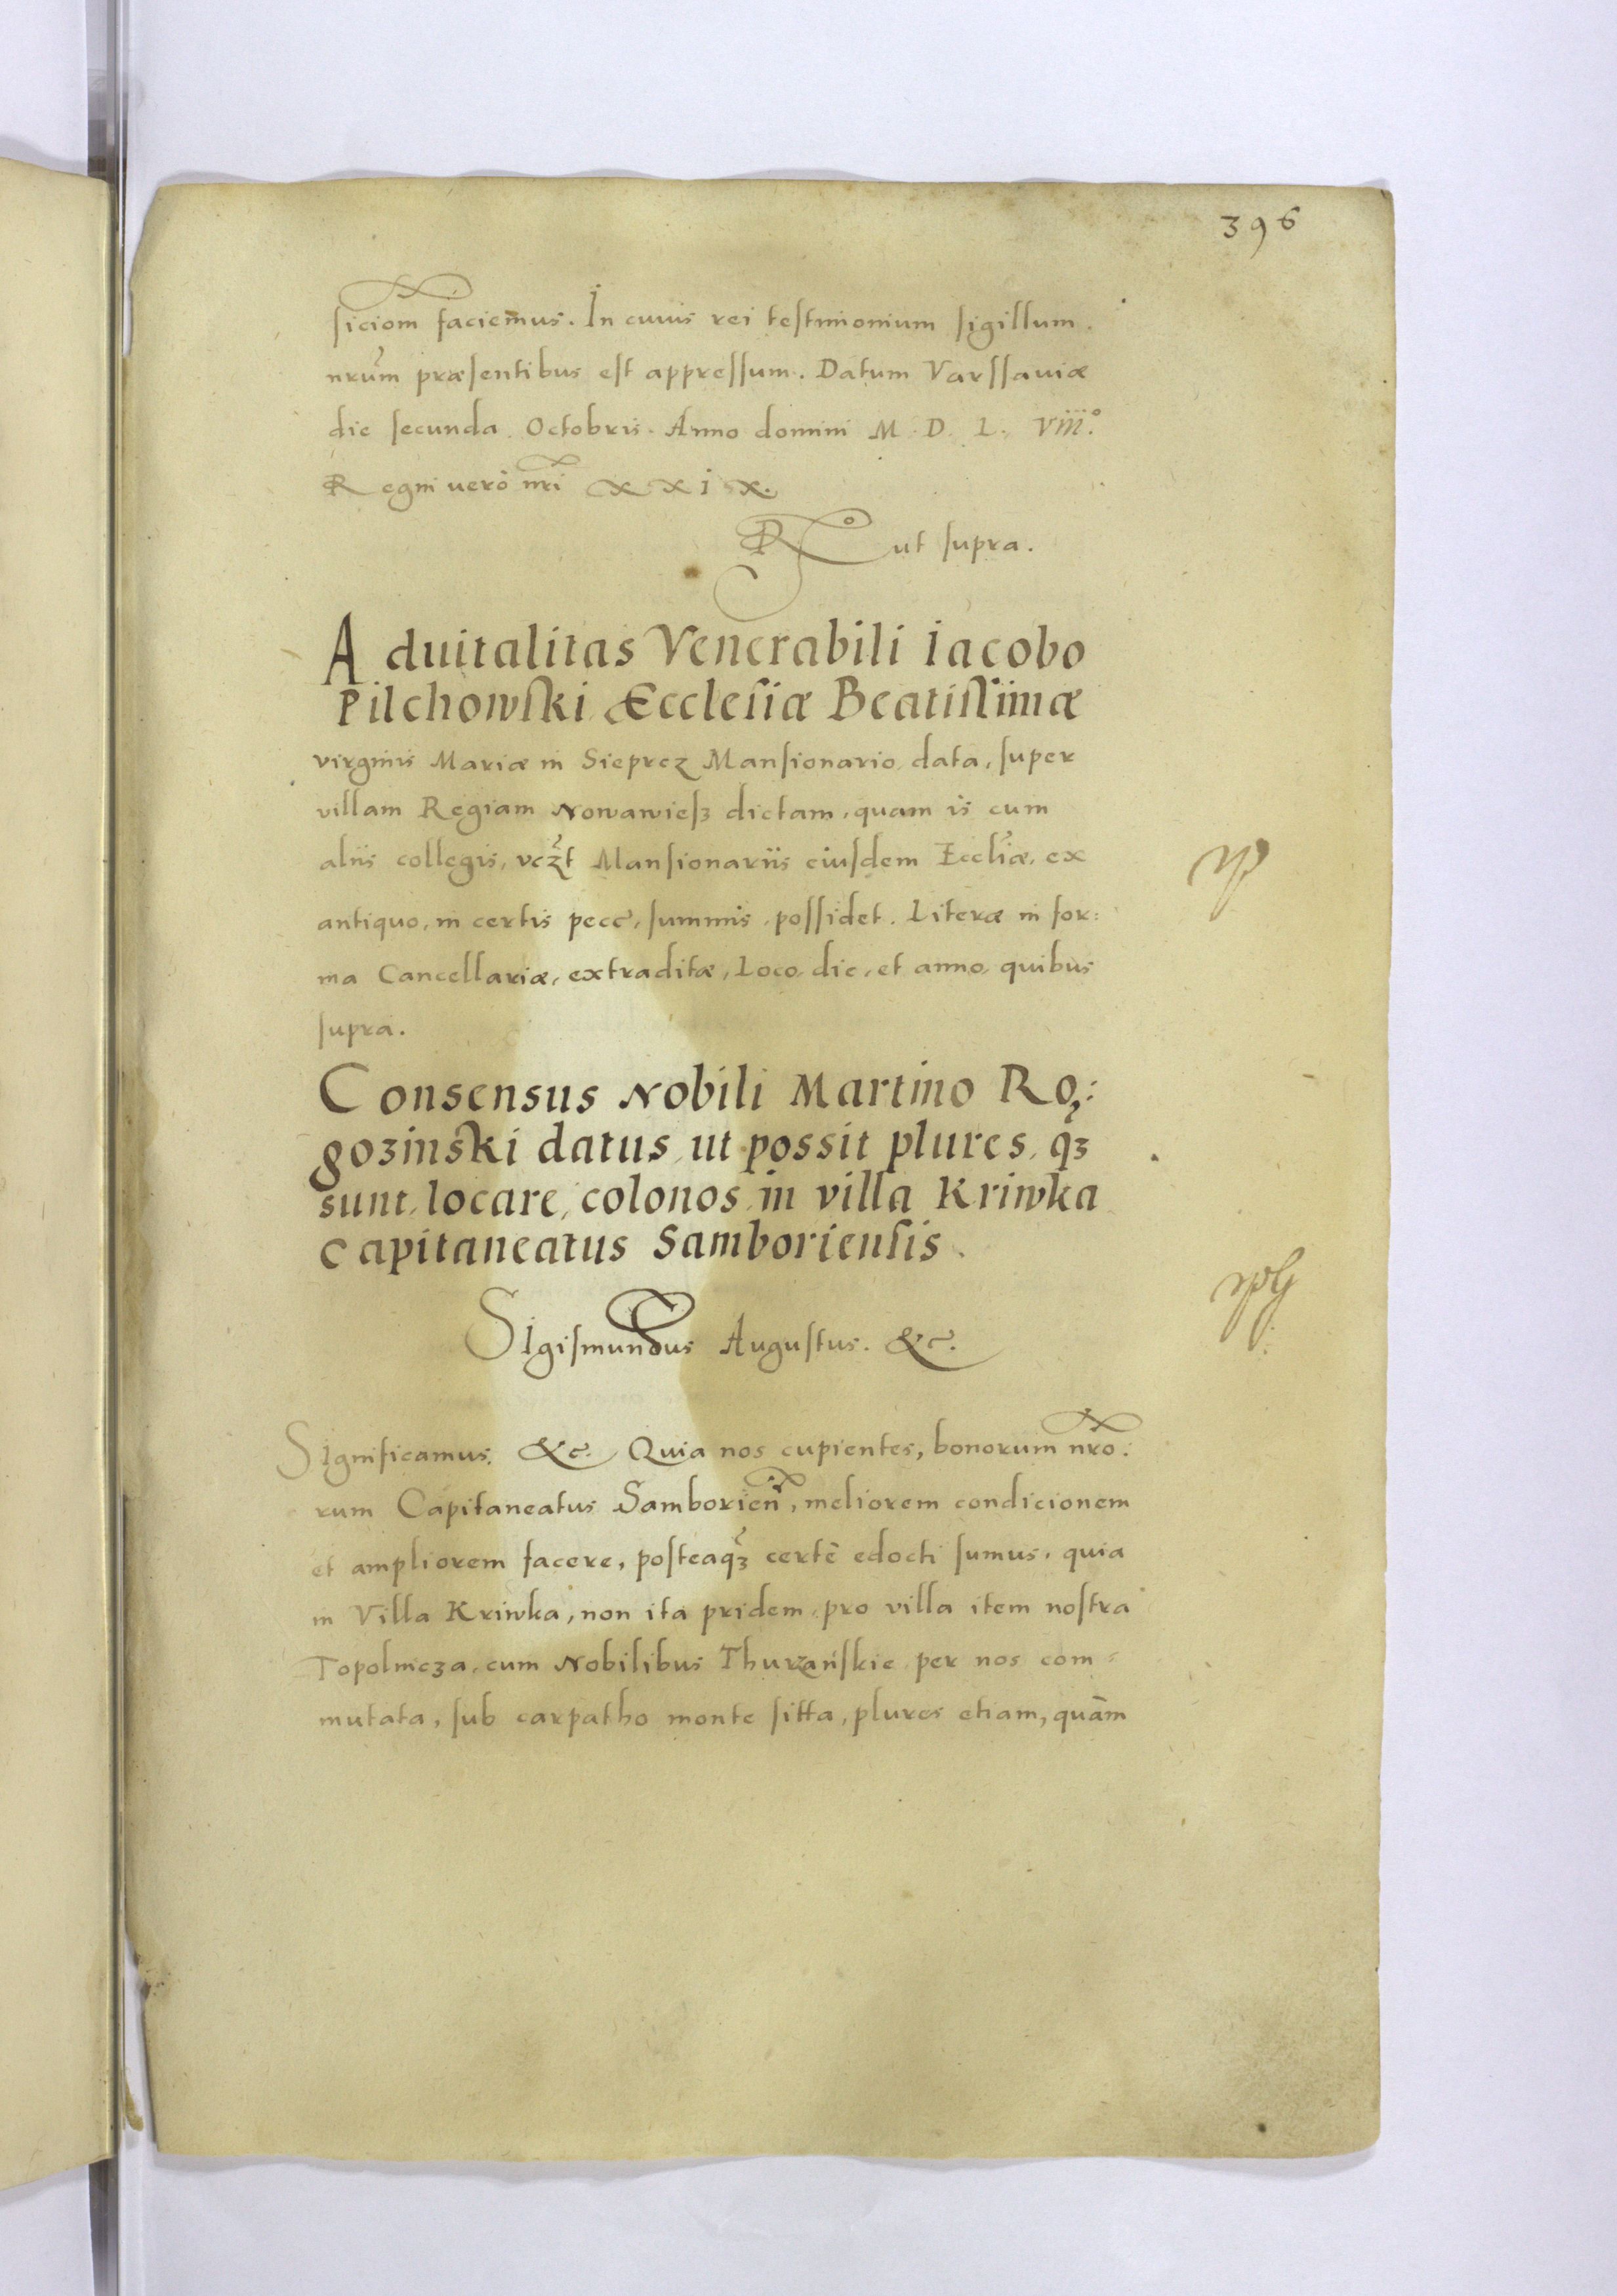 396
siciom faciemus. In cuius rei testimonium sigillum
nrum præsentibus est appressum. Datum Varssauiæ
die secunda Octobris. Anno domini M. D. L. Viii.°
Regni uero nri XXIX.
R° ut supra.
Aduitalitas Venerabili Iacobo
Pilchowski Æcclesiæ Beatissimæ
virginis Mariæ in Sieprez Mansionario data, super
villam Regiam Nowawiesz dictam, quam is cum
aliis collegis, vczt Mansionariis eiusdem Eccliæ, ex
antiquo, in certis pecc, summis, possidet. Literæ in for:
ma Cancellariæ, extraditæ, Loco, die, et anno, quibus
supra.
Consensus Nobili Martino Ro:
gozinski datus, ut possit plures, qз
sunt, locare, colonos in villa Kriwka
Capitaneatus Samboriensis.
Sigismundus Augustus. &c.
Significamus. &c. Quia nos cupientes, bonorum nro:
rum Capitaneatus Samborien, meliorem condicionem
et ampliorem facere, posteaqз certè edocti sumus, quia
in Villa Kriwka, non ita pridem, pro villa item nostra
Topolnicza, cum Nobilibus Thurzańskie per nos com
mutata, sub carpatho monte sitta, plures etiam, quàm